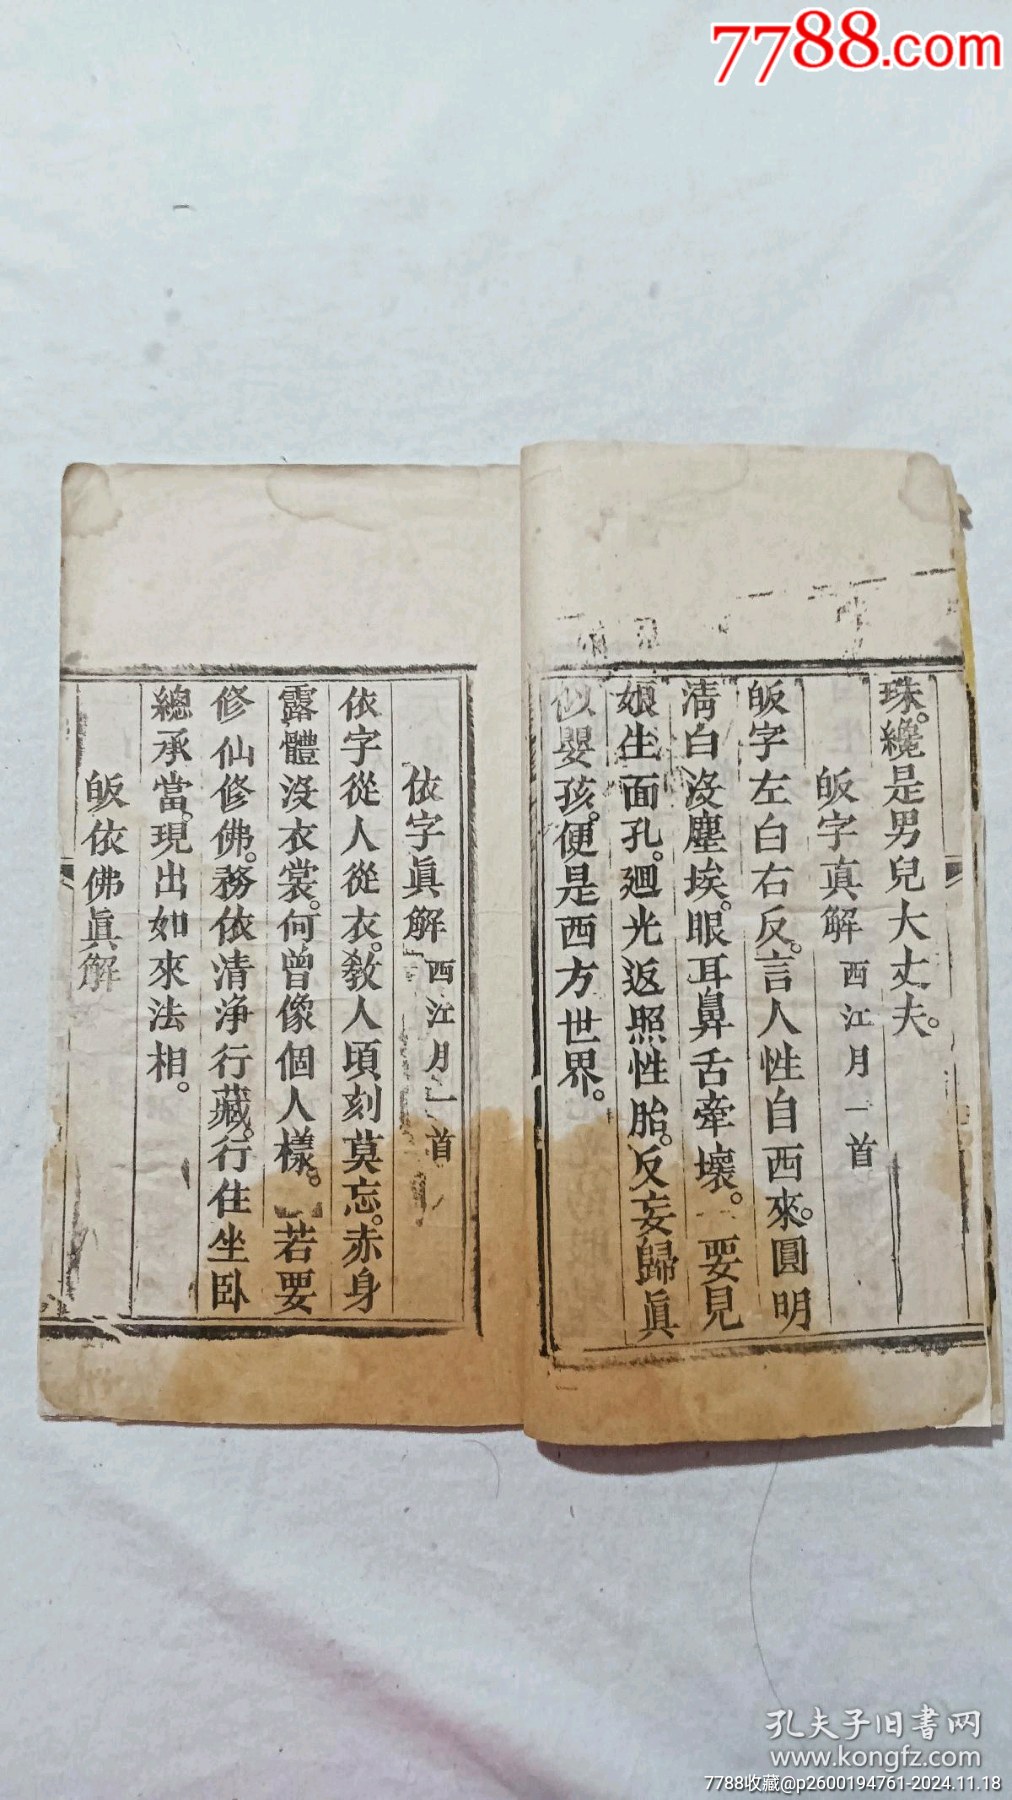 7788.com
珠。纔是男兒大丈夫。
皈字真解 西江月一首
皈字左白右反。言人性自西來。圓明
清白没塵埃。眼耳鼻舌牽壞。要見
娘生面孔。廻光返照性胎。反妄歸眞
似嬰孩。便是西方世界。
依字眞解 西江月一首
依字從人從衣。教人頃刻莫忘。赤身
露體没衣裳。何曾像個人樣。若要
修仙修佛。務依清净行藏。行住坐卧
總承當。現出如來法相。
皈依佛眞解
孔夫子旧書网
www.kongfz.com
7788收藏@p2600194761-2024.11.18